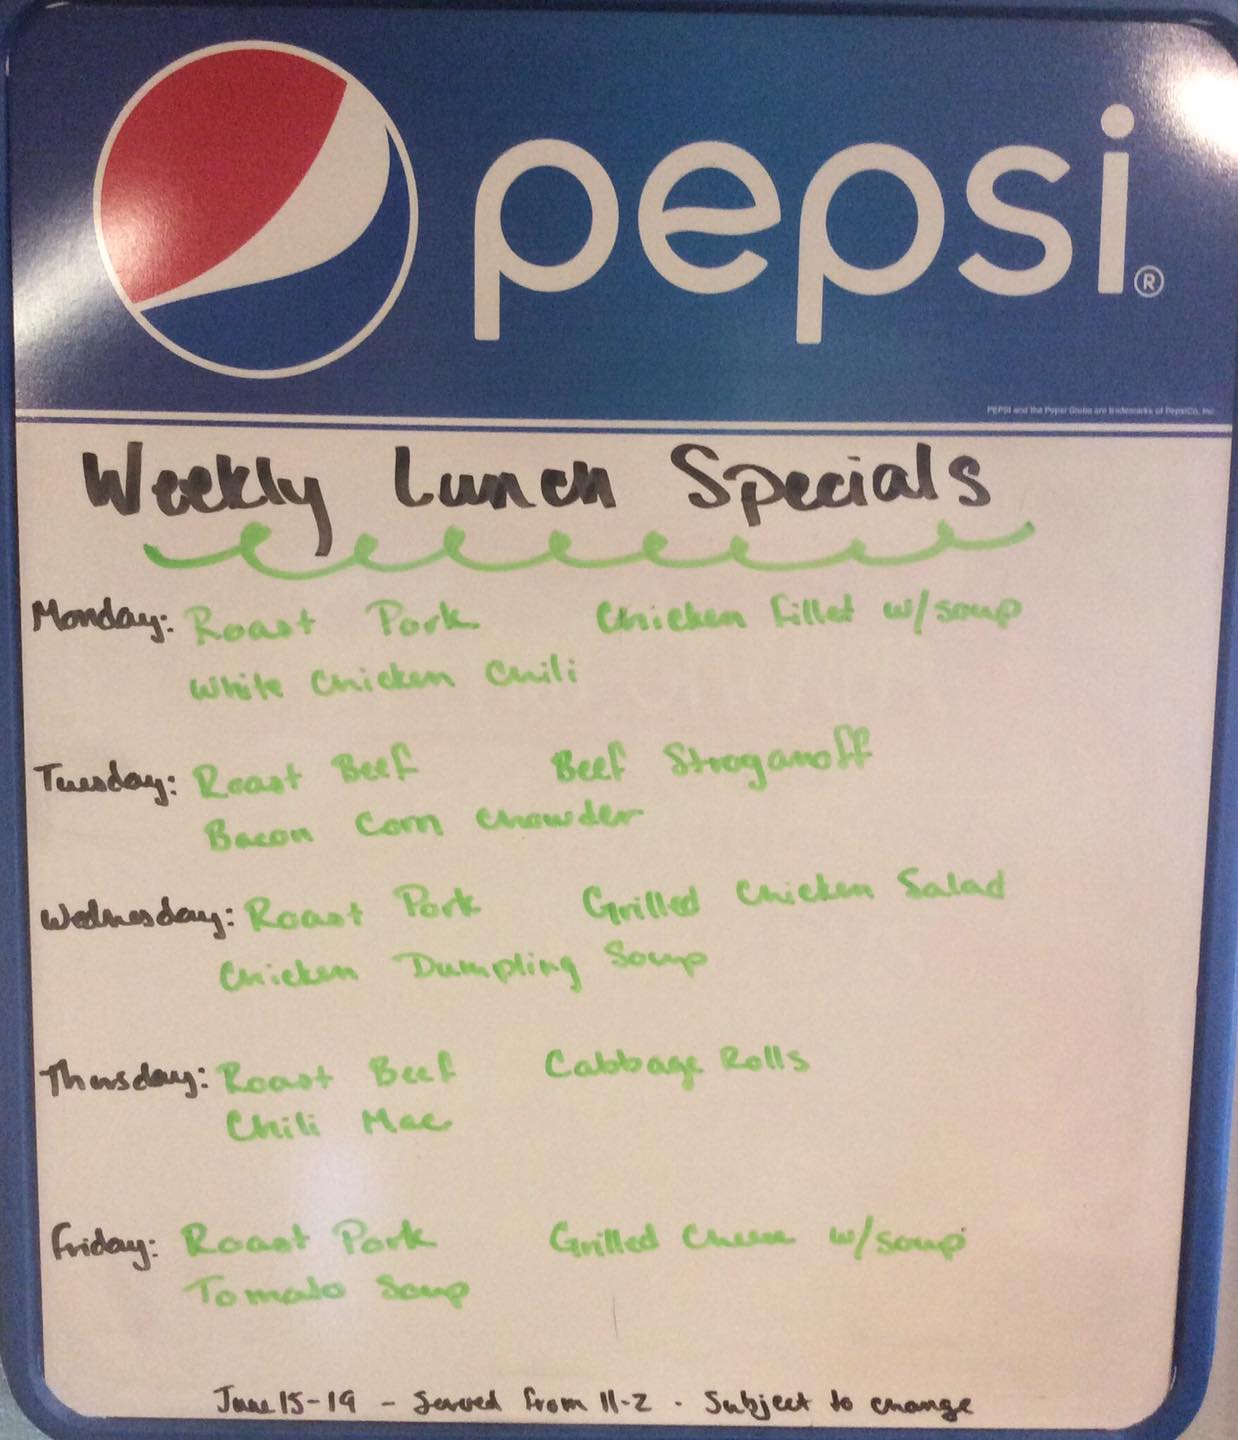 pepsi®
PEPSI and the Pepsi Globe are trademarks of PepsiCo, Inc.
Weekly Lunch Specials
Monday: Roast Pork Chicken Fillet w/soup
White Chicken Chili
Tuesday: Roast Beef Beef Stroganoff
Bacon Corn Chowder
Wednesday: Roast Pork Grilled Chicken Salad
Chicken Dumpling Soup
Thursday: Roast Beef Cabbage Rolls
Chili Mac
Friday: Roast Pork Grilled Cheese w/soup
Tomato Soup
June 15-19 - Served from 11-2 · Subject to change